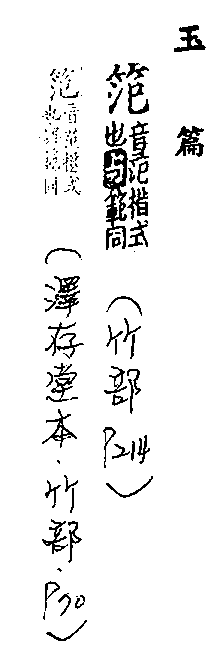 玉篇
笵音范楷式也与範同
(竹部P214)
笵音范楷式也与範同
(澤存堂本·竹部·P70)